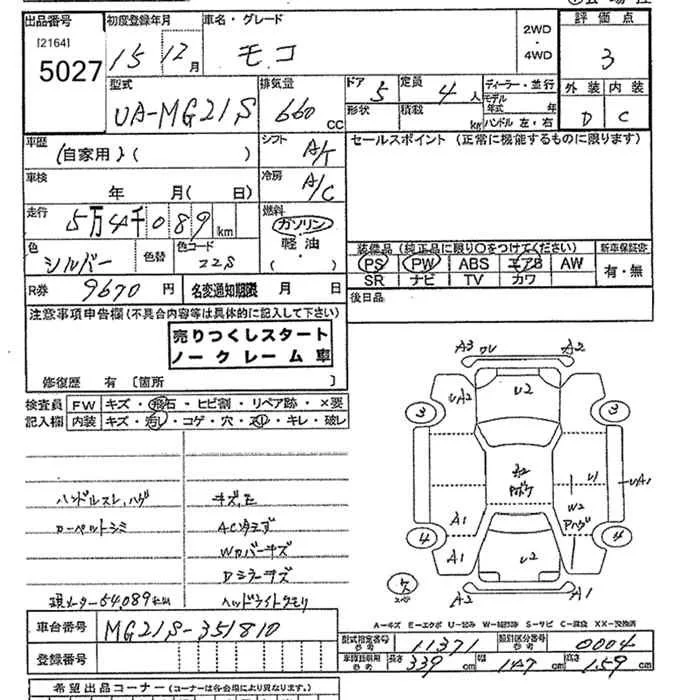 出品番号 初度登録年月 車名・グレード 2WD・4WD 評価点
[2164]
5027 15 12月 モコ 3
型式 排気量 ドア 5 定員 4人 ディーラー・並行 外装 内装
UA-MG21S 660 CC 形状 積載 kg モデル年式 年 D C
ハンドル左・右
車歴 (自家用)( ) シフト A/T セールスポイント(正常に機能するものに限ります)
車検 年 月(日) 冷房 A/C
走行 5万4千089km 燃料 ガソリン・軽油・( )
色 シルバー 色替 色コード Z2S
装備品(純正品に限り○をつけてください) 新車保証書
PS PW ABS エアB AW 有・無
SR ナビ TV カワ
R券 9670円 名変通知期限 月 日 後日品
注意事項申告欄(不具合内容等は具体的に記入して下さい)
売りつくしスタート
ノークレーム車
修復歴 有 〔箇所 〕
検査員 FW キズ・飛石・ヒビ割・リペア跡・×要
記入欄 内装 キズ・汚レ・コゲ・穴・スリ・キレ・破レ
ハンドルスレ,ハゲ
カーペットシミ AC
Wカバーキズ
Dミラーキズ
現メーター54,089km ヘッドライトクモリ
A3 ワレ A2
UA2 U2
3 3
A2 U1 UA1
W2
A1 Aハゲ
4 4
A1 U2
A2 A1
A-キズ E-エクボ U-凹み W-補修跡 S-サビ C-腐食 XX-交換済
車台番号 MG21S-351810
登録番号
型式指定番号 参考 11371 類別区分番号 参考 0004
長さ 339cm 幅 147cm 高さ 159cm
希望出品コーナー(コーナーは各会場により異なります。)